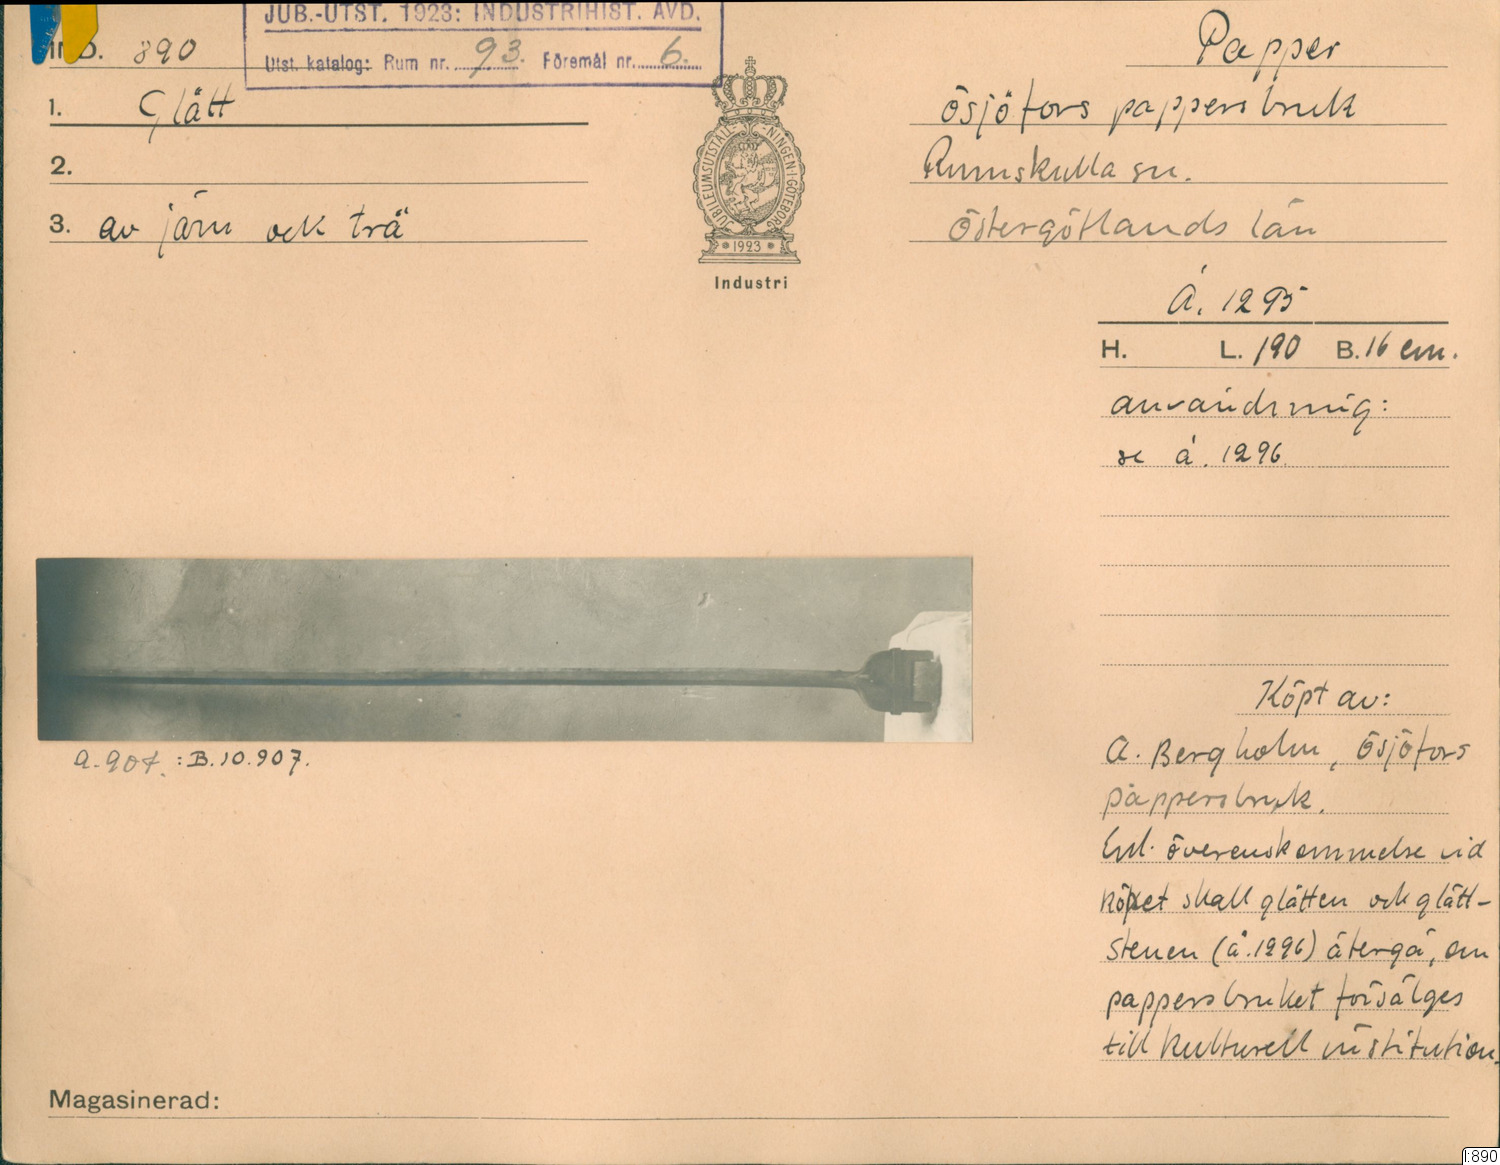 JUB.-UTST. 1923: INDUSTRIHIST. AVD.
Utst. katalog: Rum nr. 93. Föremål nr. 6.
IND. 890
1. Glätt
2.
3. av järn och trä
JUBILEUMSUTSTÄLLNINGEN I GÖTEBORG
1923
Industri
Papper
Ösjöfors pappersbruk
Rumskulla sn.
Östergötlands län
Å. 1295
H. L. 190 B. 16 cm.
användning:
se å. 1296
Köpt av:
A. Bergholm, Ösjöfors
pappersbruk.
Enl. överenskommelse vid
köpet skall glätten och glätt-
stenen (å. 1296) återgå, om
pappersbruket försälges
till kulturell institution.
a. 907. : B. 10.907.
Magasinerad:
I:890